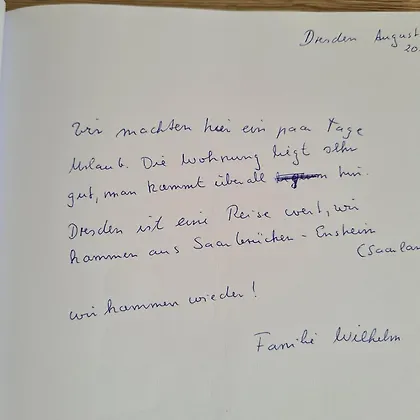 Dresden August
20
Wir machten hier ein paar Tage
Urlaub. Die Wohnung liegt sehr
gut, man kommt überall hin.
Dresden ist eine Reise wert, wir
kommen aus Saarbrücken-Ensheim
(Saarlan
wir kommen wieder!
Familie Wilhelm